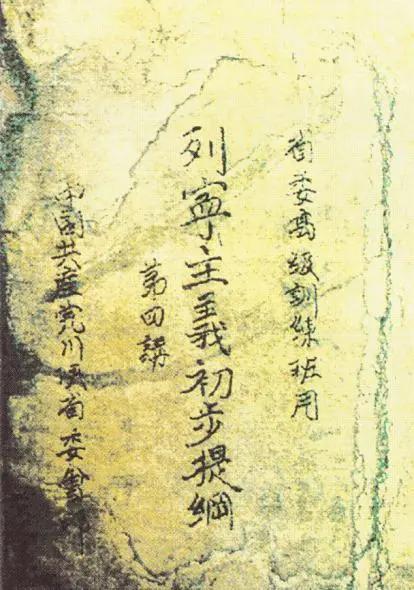 省委高級訓練班用
列寧主義初步提綱
第四講
中國共產党川陝省委會